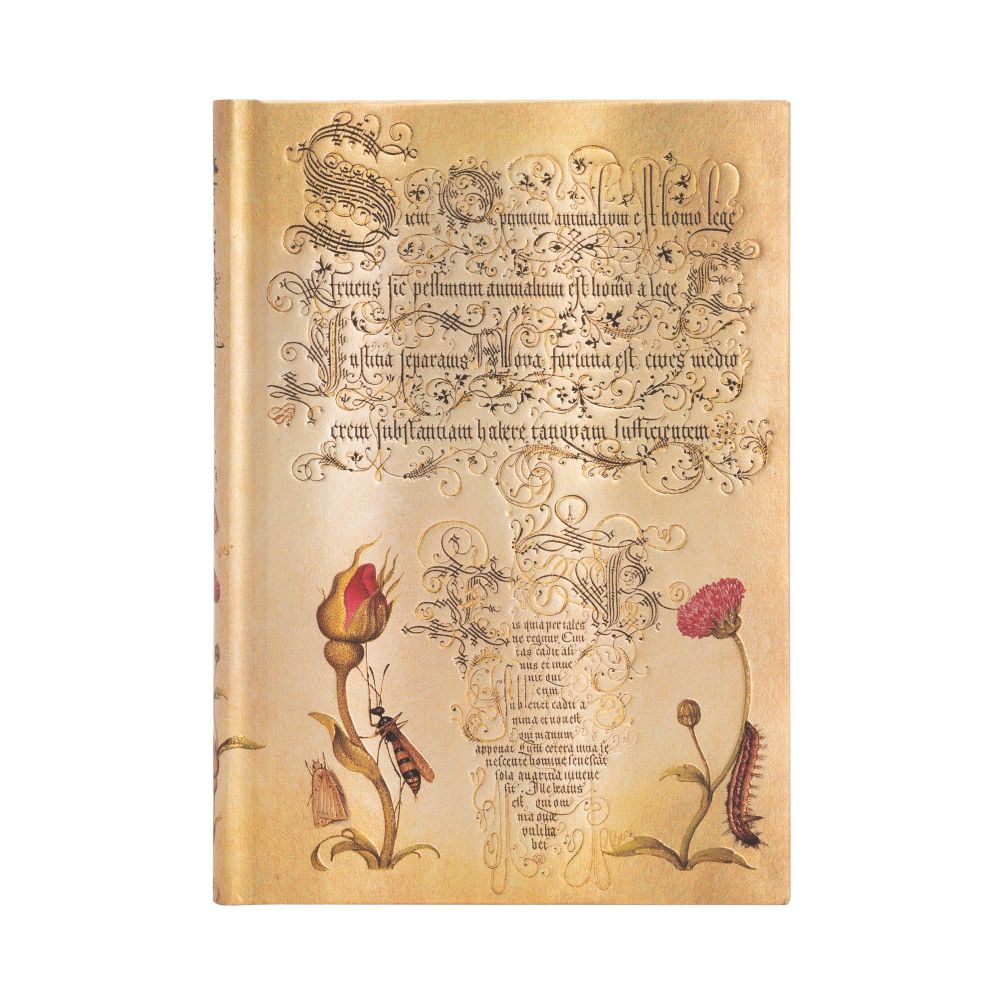 Sicut Optimum animalium est homo lege
fruens sic pessimum animalium est homo a lege E
Iustitia separatus Nova fortuna est cives medio
crem substantiam habere tanquam sufficientem
is quia per tales
ne regitur Civi
tas cadit ali
nus et inve
nit qui
cum
Sublevet cadit a
nima et non est
qui manum
apponat Cum cetera vitia se
nescente homine senescat
sola avaritia iuvene
sit. Ille beatus
est qui om
nia quae
vult ha
bet